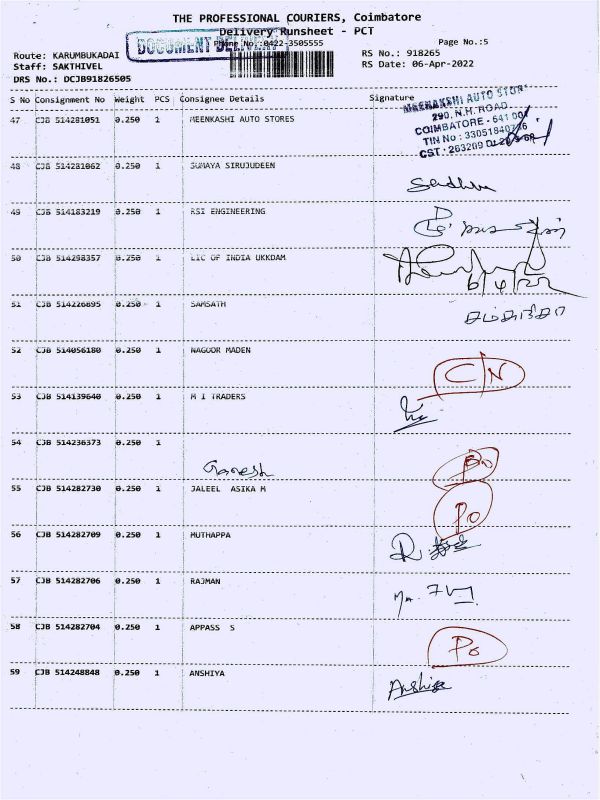 THE PROFESSIONAL COURIERS, Coimbatore
Delivery Runsheet - PCT
DOCUMENT DELIVERY
Phone No.:0422-3505555 Page No.:5
Route: KARUMBUKADAI RS No.: 918265
Staff: SAKTHIVEL RS Date: 06-Apr-2022
DRS No.: DCJB91826505
S No Consignment No Weight PCS Consignee Details Signature
MEENAKSHI AUTO STOR
290, N.H. ROAD
COIMBATORE - 641 001
47 CJB 514281051 0.250 1 MEENKASHI AUTO STORES
48 CJB 514281062 0.250 1 SUMAYA SIRUJUDEEN
49 CJB 514183219 0.250 1 RSI ENGINEERING
50 CJB 514298357 0.250 1 LIC OF INDIA UKKDAM
6/4/22
51 CJB 514226895 0.250 1 SAMSATH
52 CJB 514056180 0.250 1 NAGOOR MADEN
CN
53 CJB 514139640 0.250 1 M I TRADERS
54 CJB 514236373 0.250 1
Ganesh
55 CJB 514282730 0.250 1 JALEEL ASIKA M
Po
56 CJB 514282709 0.250 1 MUTHAPPA
57 CJB 514282706 0.250 1 RAJMAN
58 CJB 514282704 0.250 1 APPASS S
Po
59 CJB 514248848 0.250 1 ANSHIYA
Anshiya